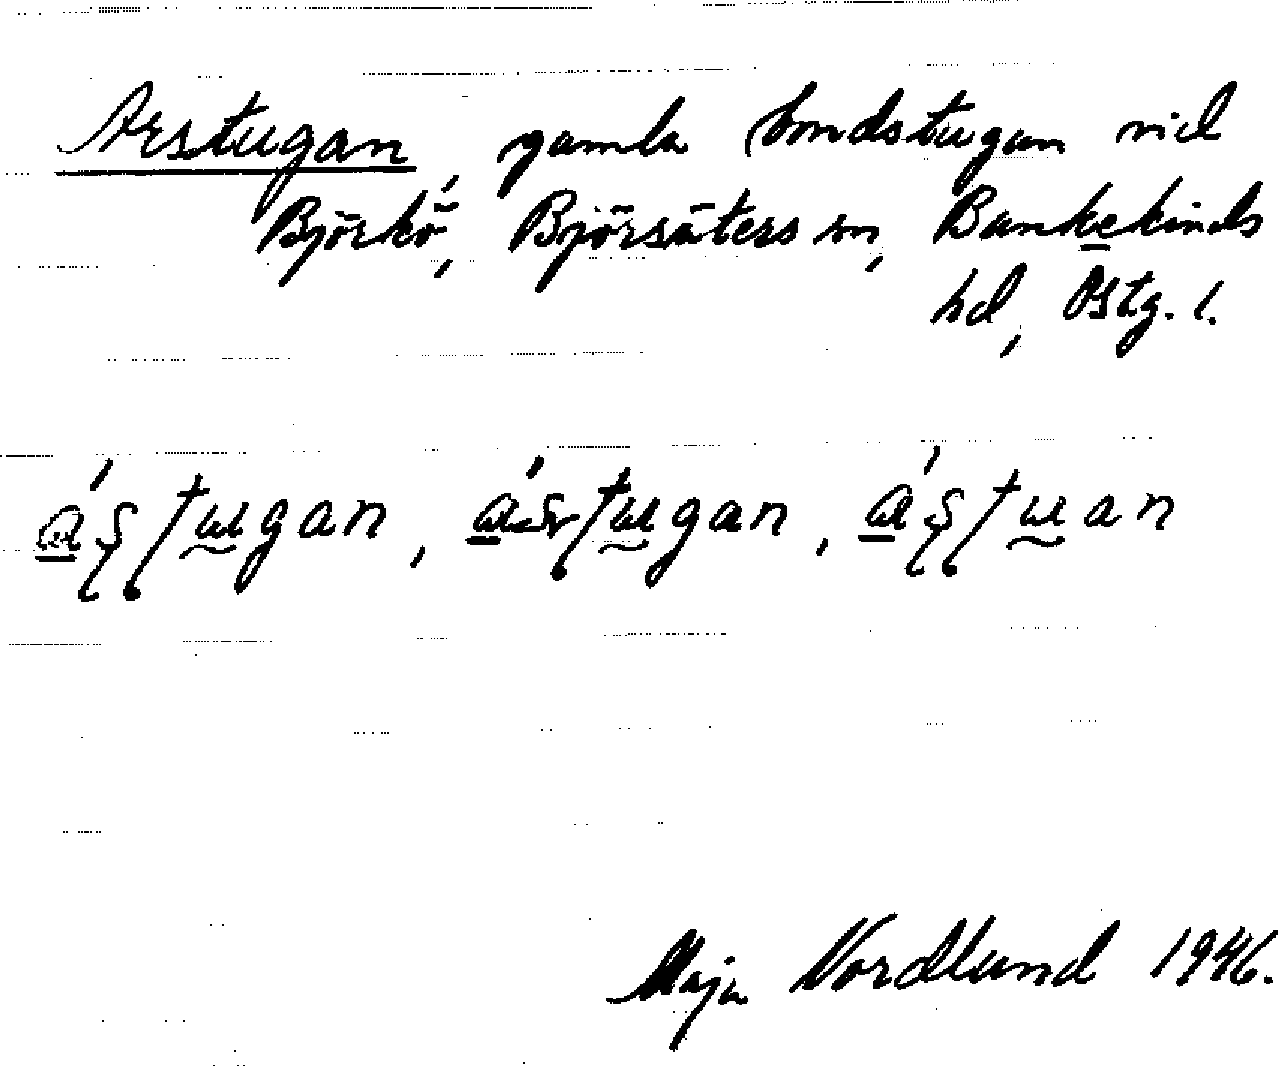 Arstugan, gamla bondstugan vid
Björkö, Björsäters sn, Bankekinds
hd, Östg. l.
a̲´ʂtṵgan, a̲´ʂtṵgan, a̲´ʂtṵan
Maja Nordlund 1946.